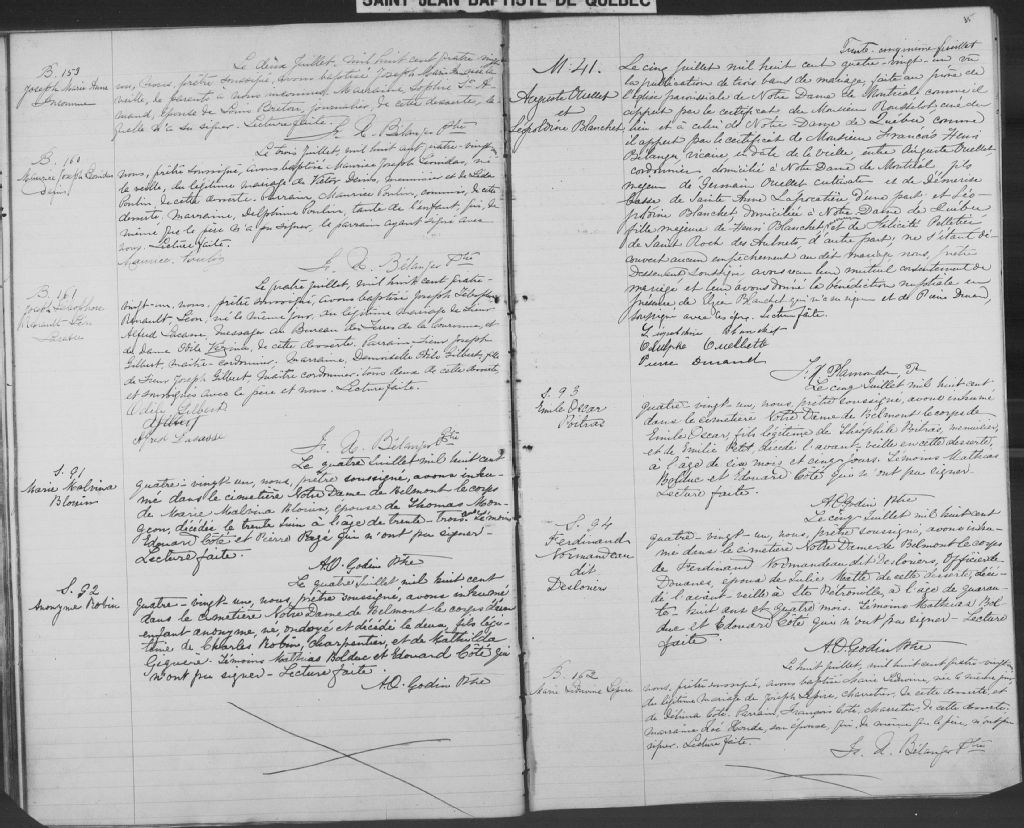 SAINT JEAN BAPTISTE DE QUÉBEC
B. 159
Joseph Marie Anne
Inconnue
Le deux Juillet, mil huit cent quatre-vingt-
un, nous, prêtre soussigné, avons baptisé Joseph Marie né la
veille, de parents à nous inconnus. Marraine, Sophie St. A-
mand, épouse de Louis Breton, journalier, de cette desserte, la-
quelle n'a su signer. Lecture faite.
Fr. X. Bélanger Ptre
B. 160
Maurice Joseph Léonidas
Denis
Le trois Juillet, mil huit cent quatre-vingt-
nous, prêtre soussigné, avons baptisé Maurice Joseph Léonidas, né
la veille, du légitime mariage de Victor Denis, menuisier et de
Poulin, de cette desserte. Parrain Maurice Poulin, commis, de cette
desserte, marraine, Delphine Poulin, tante de l'enfant, qui, de
même que le père n'a pu signer, le parrain ayant signé avec
nous. Lecture faite.
Maurice Poulin
Fr. X. Bélanger Ptre
B. 161
Le quatre Juillet, mil huit cent quatre-
vingt-un, nous, prêtre soussigné, avons baptisé Joseph
Renault-Léon, né le même jour, du légitime mariage de Sieur
Alfred Lacasse, Messager au Bureau des Terres de la Couronne, et
de Dame Odile Vézina, de cette desserte. Parrain Sieur Joseph
Gilbert, maître-cordonnier, marraine, Demoiselle Odile Gilbert, fille
de Sieur Joseph Gilbert, maître cordonnier; tous deux de cette desserte
et soussignés avec le père et nous. Lecture faite.
Odile Gilbert
J Gilbert
Alfred Lacasse
Fr. X. Bélanger Ptre
S. 91
Marie Malvina
Blouin
Le quatre Juillet mil huit cent
quatre-vingt-un, nous, prêtre soussigné, avons inhu-
mé dans le cimetière Notre Dame de Belmont le corps
de Marie Malvina Blouin, épouse de Thomas Mon-
geon, décédée le trente Juin à l'âge de trente-trois ans. Témoins
Edouard Côté et Pierre Pagé qui n'ont pu signer-
Lecture faite.
A.O. Godin Ptre
S. 92
Anonyme Robin
Le quatre Juillet mil huit cent
quatre-vingt-un, nous, prêtre soussigné, avons inhumé
dans le cimetière Notre Dame de Belmont le corps d'un
enfant anonyme, né ondoyé et décédé le deux, fils légi-
time de Charles Robin, charpentier, et de Mathilda
Giguère. Témoins Mathias Bolduc et Edouard Côté qui
n'ont pu signer - Lecture faite
A.O. Godin Ptre
Trente-cinquième feuillet
M. 41.
Auguste Ouellet
et
Léopoldine Blanchet
Le cinq juillet mil huit cent quatre-vingt-un vu
la publication de trois bans de mariage, faite au prône de
l'église paroissiale de Notre Dame de Montréal comme il
appert par le certificat de Monsieur Rousselot curé du
lieu et à celui de Notre Dame de Québec comme
il appert par le certificat de Monsieur François Henri
Bélanger, vicaire, en date de la veille, entre Auguste Ouellet,
cordonnier, domicilié à Notre Dame de Montréal fils
majeur de Germain Ouellet cultivateur et de Démérise
Gasse de Sainte Anne Lapocatière d'une part et Léo-
poldine Blanchet domiciliée à Notre Dame de Québec
fille majeure de Henri Blanchet et de Félicité Pelletier
de Saint Roch des Aulnets d'autre part; ne s'étant dé-
couvert aucun empêchement au dit mariage nous, prêtre
Desservant soussigné avons reçu leur mutuel consentement de
mariage et leur avons donné la bénédiction nuptiale en
présence de Elzéa Blanchet qui n'a su signer et de Pierre Durand,
soussigné avec les époux. Lecture faite.
Léopoldine Blanchet
Ouellette
Pierre Durand
F. H. Plamondon Ptre
S. 93
Emile Oscar
Poitras
Le cinq Juillet mil huit cent
quatre-vingt un, nous, prêtre soussigné, avons inhumé
dans le cimetière Notre Dame de Belmont le corps de
Emile Oscar, fils légitime de Théophile Poitras, menuisier,
et de Emilie Petit, décédé l'avant-veille en cette desserte,
à l'âge de six mois et cinq jours. Témoins Mathias
Bolduc et Edouard Côté qui n'ont pu signer
Lecture faite.
A.O. Godin Ptre
S. 94
Ferdinand
Normandeau
dit
Desloriers
Le cinq Juillet mil huit cent
quatre-vingt-un, nous, prêtre soussigné, avons inhu-
mé dans le cimetière Notre Dame de Belmont le corps
de Ferdinand Normandeau dit Desloriers, Officier de
Douanes, époux de Julie Matte de cette desserte, décé-
dé l'avant-veille à Ste Pétronille, à l'âge de quaran-
te-huit ans et quatre mois. Témoins Mathias Bol-
duc et Edouard Côté qui n'ont pu signer - Lecture
faite.
A.O. Godin Ptre
B. 162
Marie Lépire
Le huit Juillet, mil huit cent quatre-vingt-un
nous, prêtre soussigné, avons baptisé Marie née le même jour
du légitime mariage de Joseph Lépire, charretier, de cette desserte, et
de Délima Côté. Parrain, François Côté, charretier, de cette desserte
marraine, son épouse, qui, de même que le père n'ont pu
signer. Lecture faite.
Fr. X. Bélanger Ptre